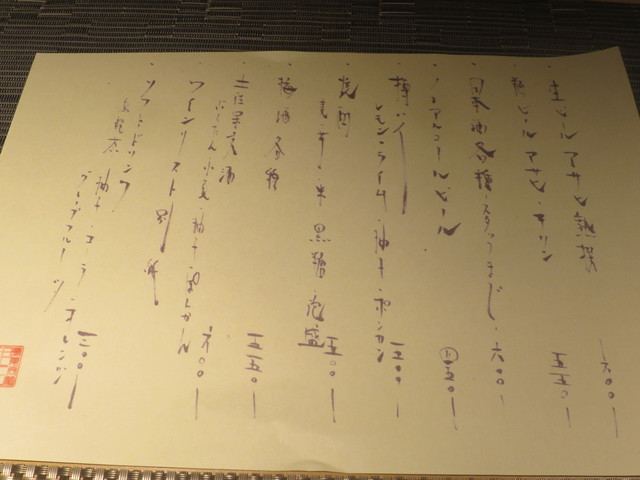 ・生ビール アサヒ熟撰 六〇〇
・瓶ビール アサヒ・キリン 五五〇
・日本酒各種・スタッフまで・ 六〇〇
・ノンアルコールビール 五〇
・樽ハイ
レモン・ライム・柚子・ポンカン 五〇〇
・焼酎
麦・芋・米・黒糖・泡盛 五〇〇
・梅酒各種 五五〇
にんじん・小夏・柚子・ぽんかん 六〇〇
・ワインリスト 別
・ソフトドリンク
烏龍茶・柚子・コーラ・オレンジ
グレープフルーツ 三〇〇